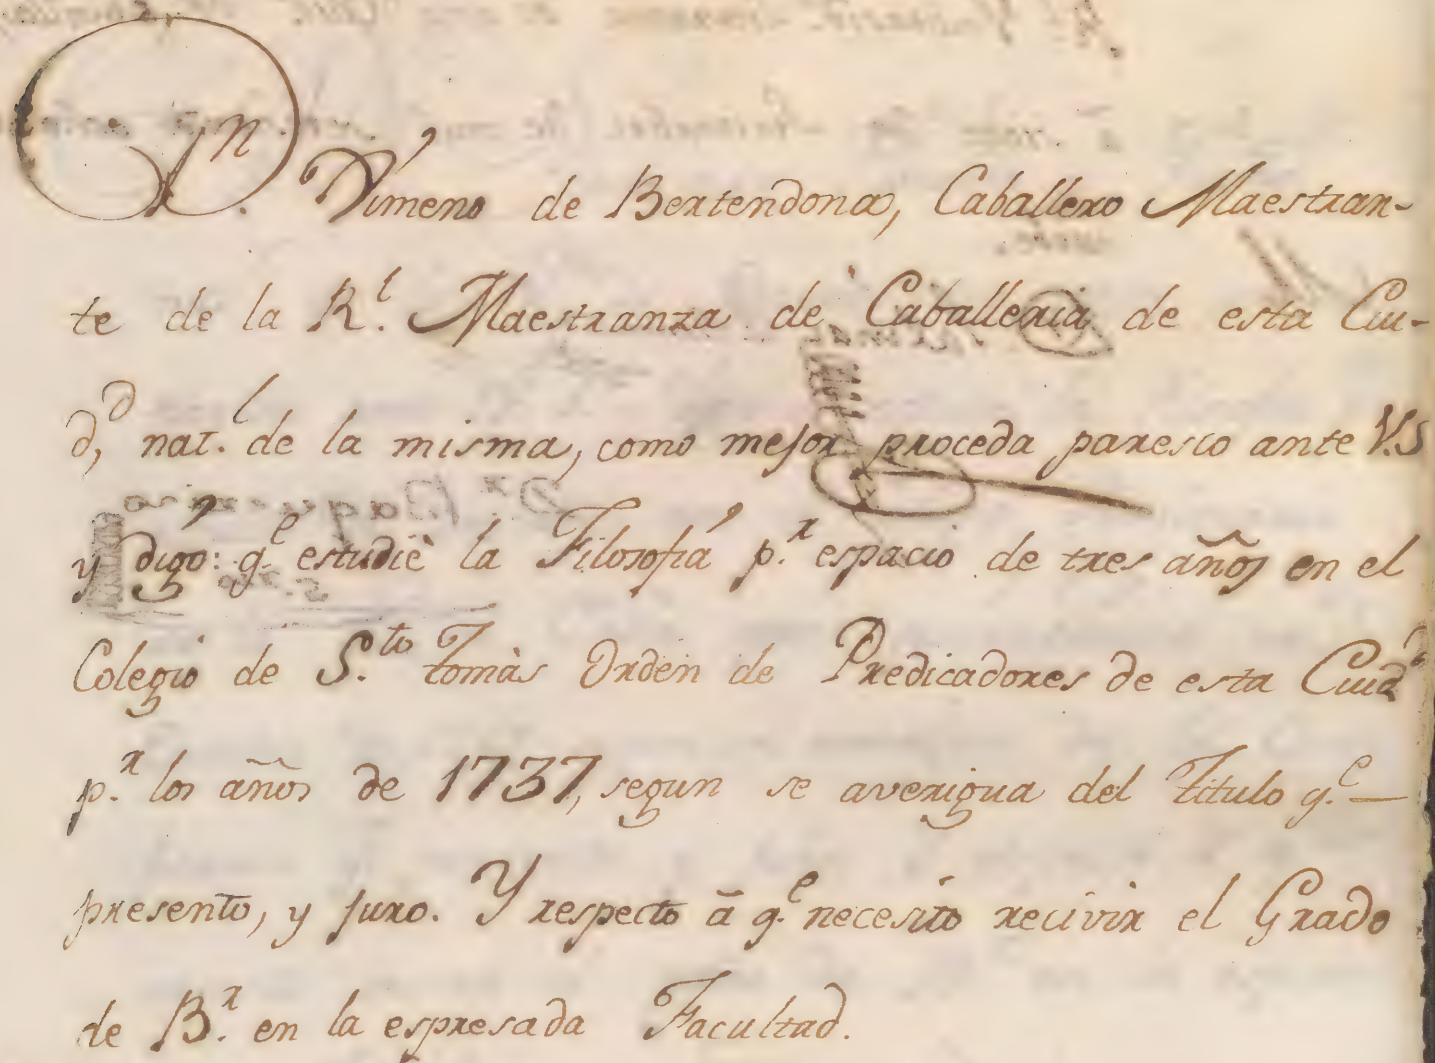 Dn. Ximeno de Bertendona, Caballero Maestran-
te de la Rl. Maestranza de Caballeria de esta Ciu-
dd, nat.l de la misma, como mejor proceda paresco ante V.S
y digo: q.e estudiè la Filosofía p.r espacio de tres años en el
Colegio de S.to Tomàs Orden de Predicadores de esta Ciudd
p.r los años de 1737, segun se averigua del Titulo q.e
presento, y juro. Y respecto à q.e necesito recivir el Grado
de B.r en la espresada Facultad.